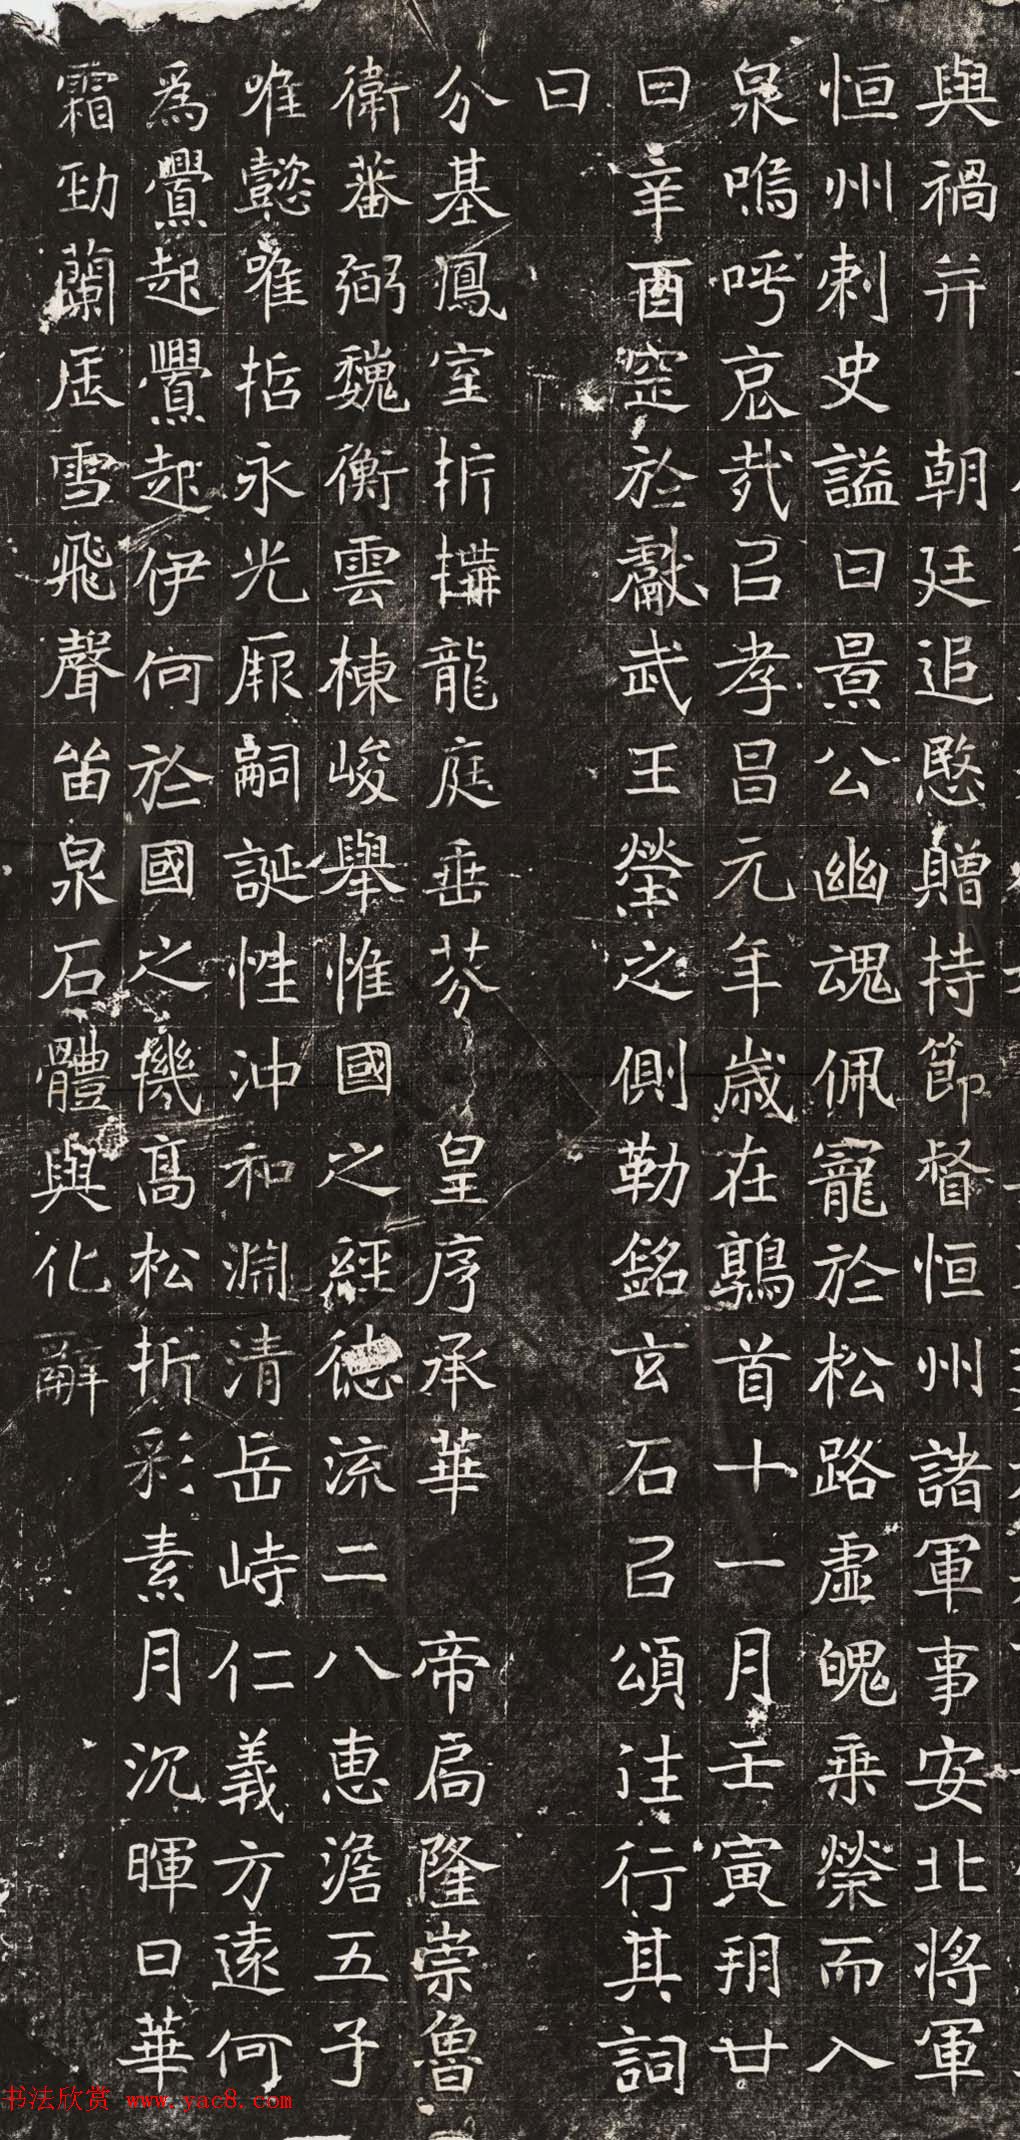 與禍并朝廷追愍贈持節督恒州諸軍事安北將軍
恒州刺史謚曰景公幽魂佩寵於松路虛魄乘榮而入
泉嗚呼哀哉㠯孝昌元年歲在鶉首十一月壬寅朔廿
日辛酉窆於獻武王塋之側勒銘玄石㠯頌往行其詞
曰
分基鳳室折構龍庭垂芬皇序承華帝扃隆崇魯
衛蕃弼魏衡雲棟峻舉惟國之經德流二八惠澹五子
唯懿唯哲永光厥嗣誕性沖和淵清岳峙仁義方遠何
為舋起舋起伊何於國之機高松折彩素月沉暉日華
霜勁蘭居雪飛聲留泉石體與化辭
书法欣赏 www.yac8.com